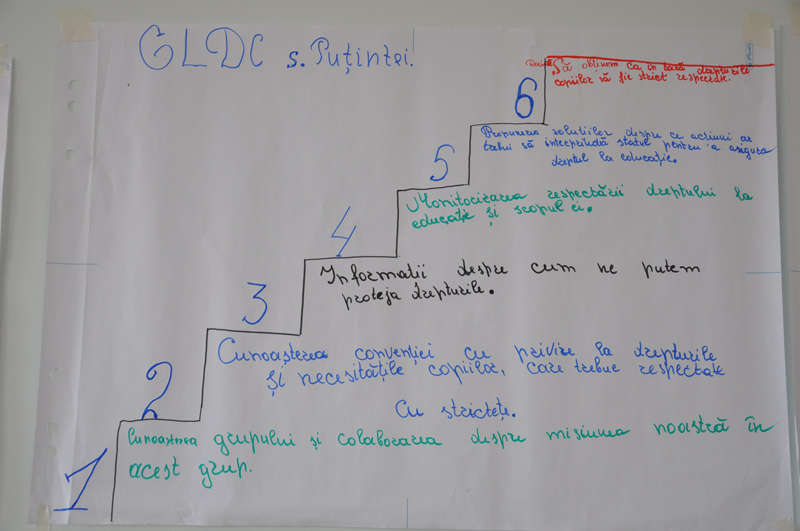 GLDC s. Puținței.
6
Să obținem ca în țară drepturile
copiilor să fie strict respectate.
5
Propunerea soluțiilor despre ce acțiuni ar
trebui să întreprindă statul pentru a asigura
dreptul la educație.
4
Monitorizarea respectării dreptului la
educație și scopul ei.
3
Informatii despre cum ne putem
proteja drepturile.
2
Cunoașterea convenției cu privire la drepturile
și necesitățile copiilor, care trebue respectate
cu strictețe.
1
Cunoașterea grupului și colaborarea despre misiunea noastră în
acest grup.